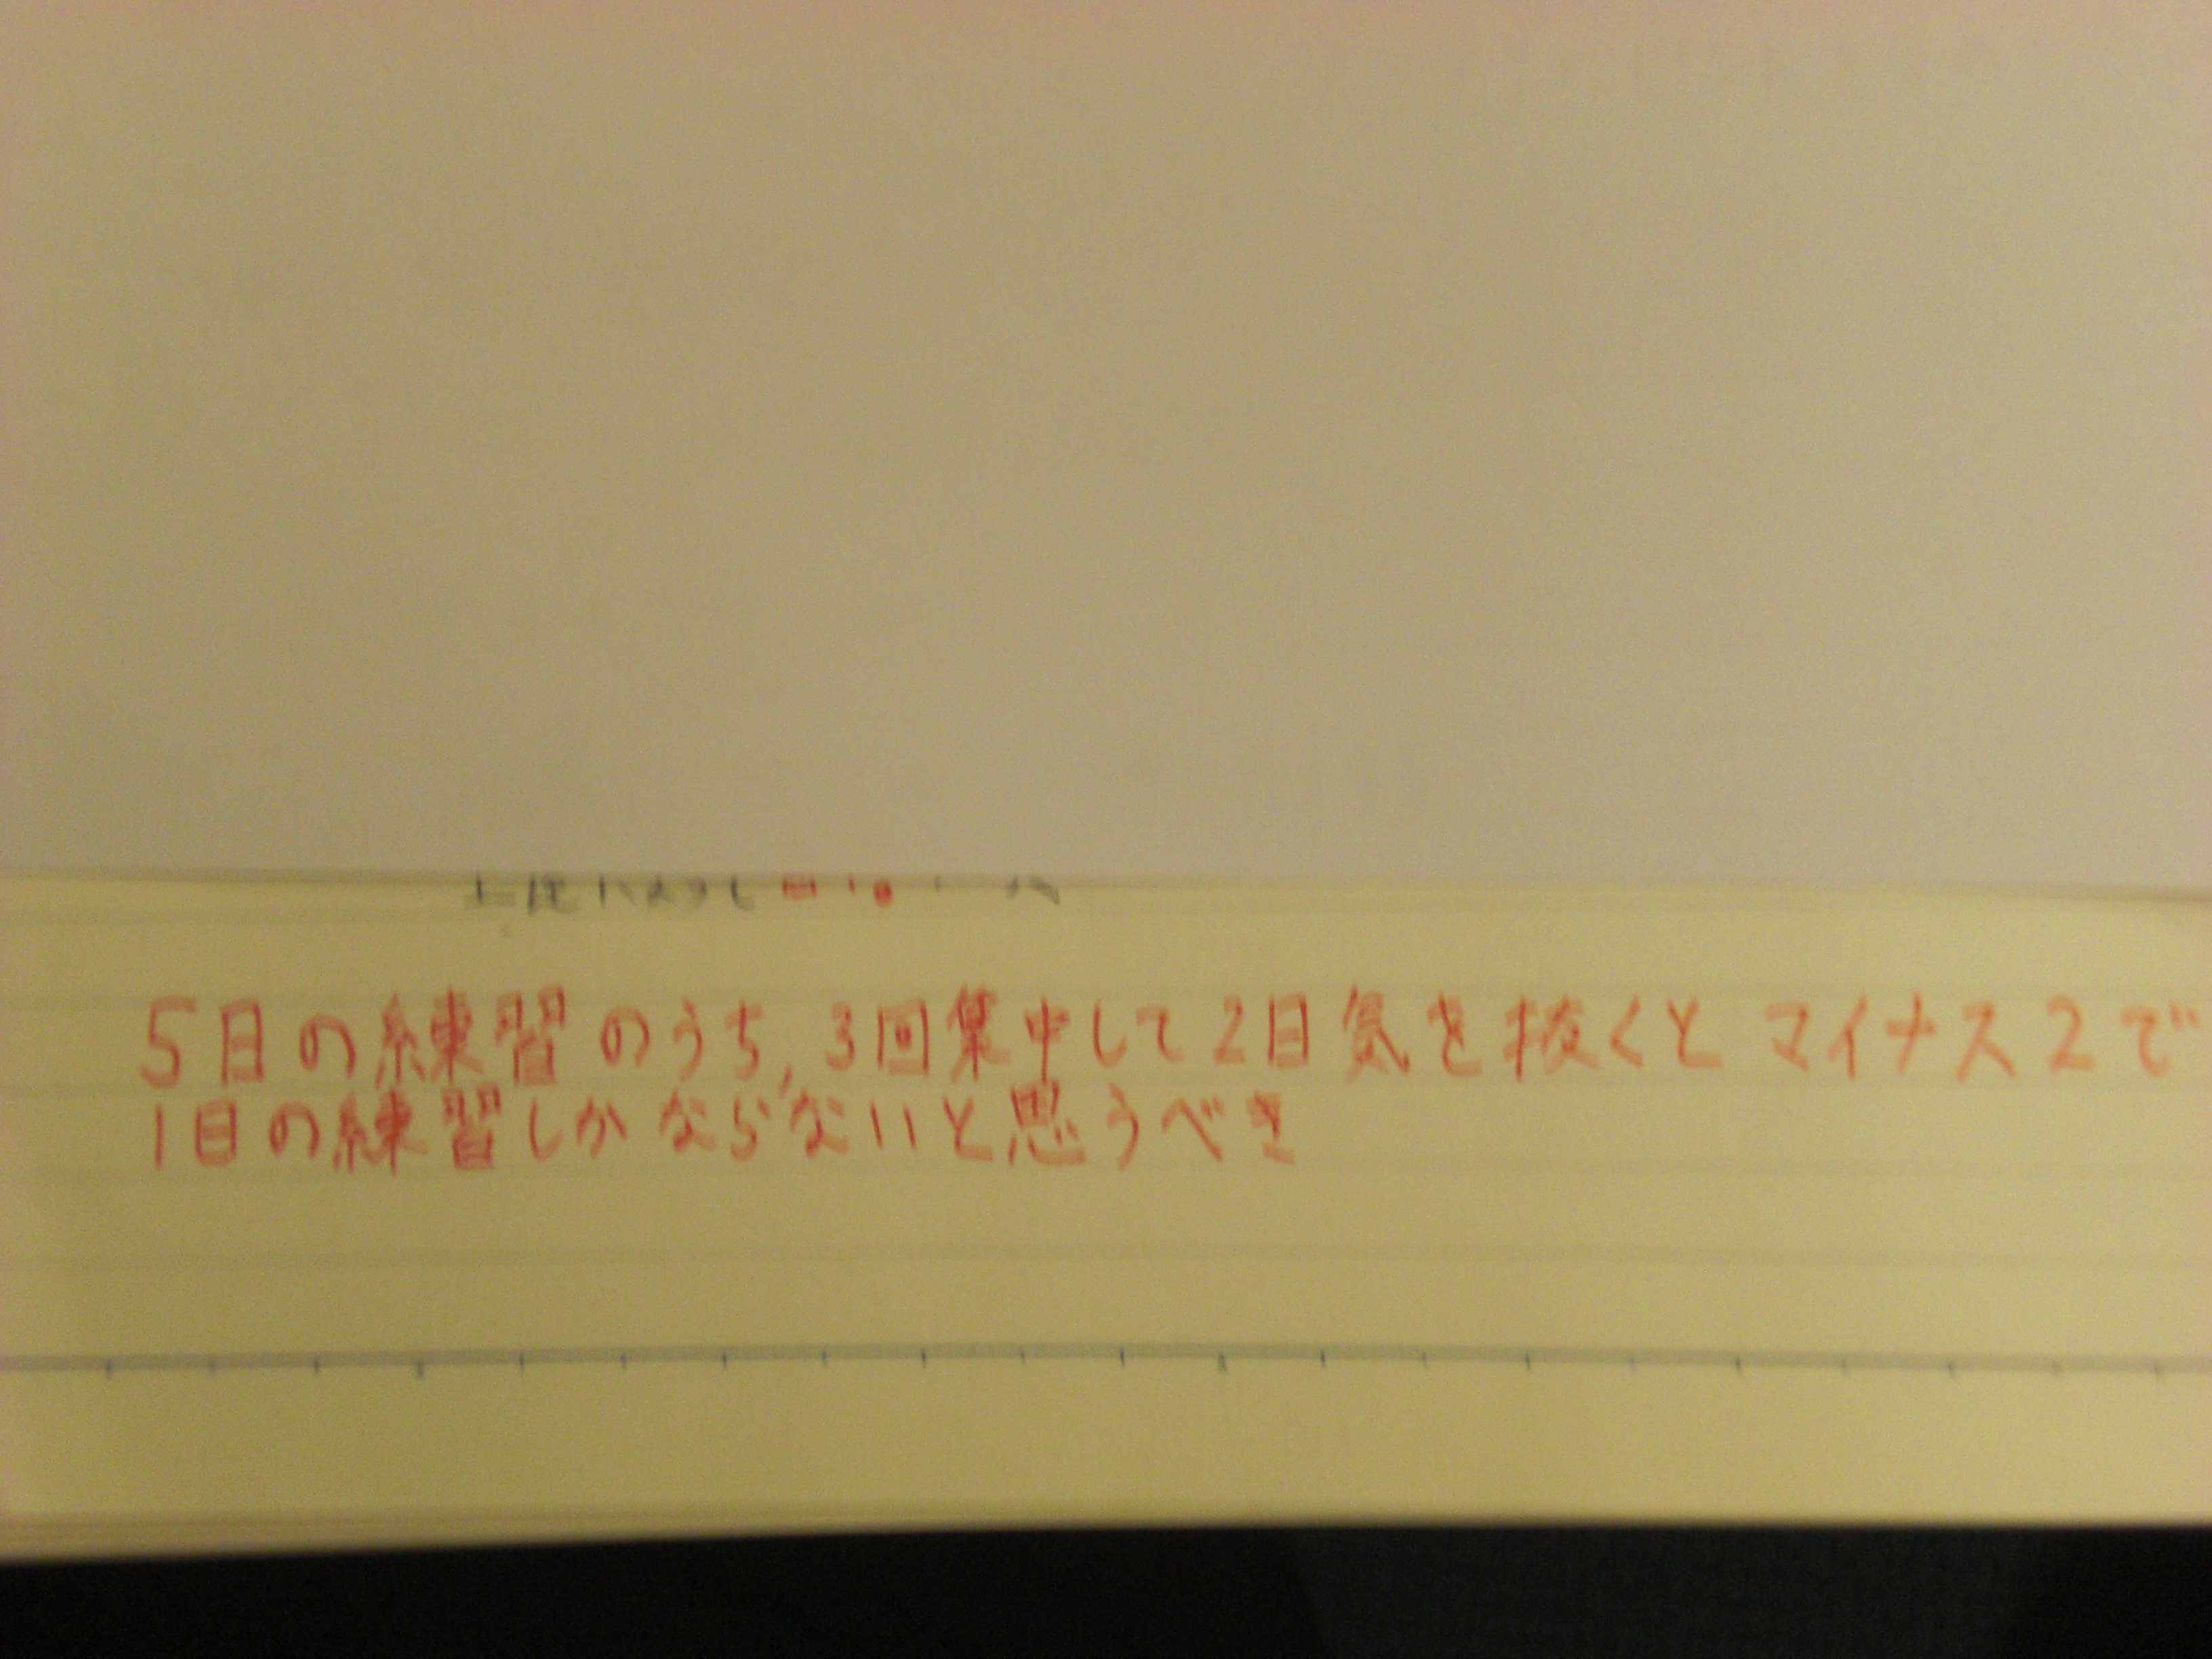 5日の練習のうち,3回集中して2日気を抜くとマイナス2で
1日の練習しかならないと思うべき